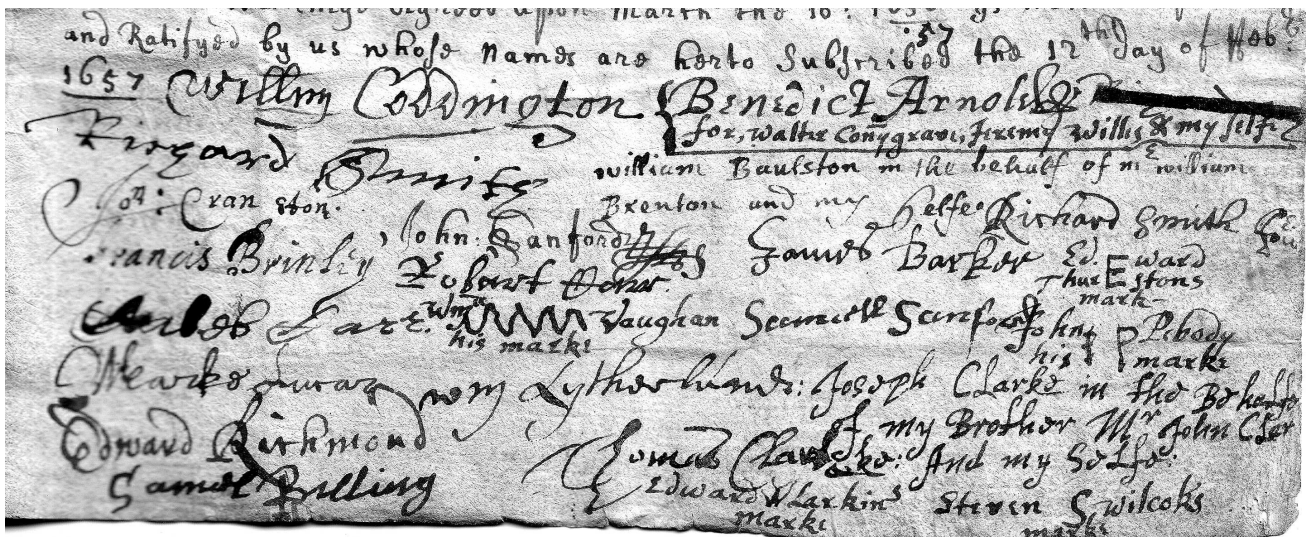 upon March the 10th
and Ratifyed by us whose Names are herto Subscribed the 12th Day of Feb
57
1657 Willm Coddington Benedict Arnold
for, Walter Conygrave, Jeremy Willis & my selfe
Richard Smith william Baulston in the behalf of mr william
Jon: Cranston. Brenton and my selfe Richard Smith
Francis Brinley, John: Sanford James Barker Ed. Ward
Robart Carr Thurstons
mark
Caleb Carr. Wm Vaughan Samuell Sanford John Pebody
his marke his marke
Marke Lucar wm Lytherland: Joseph Clarke in the Behalfe
of my Brother Mr John Clar
Edward Richmond Thomas Clarke: And my Selfe:
Samuel Billing Edward Larkins Steven S Wilcoks
marke marke